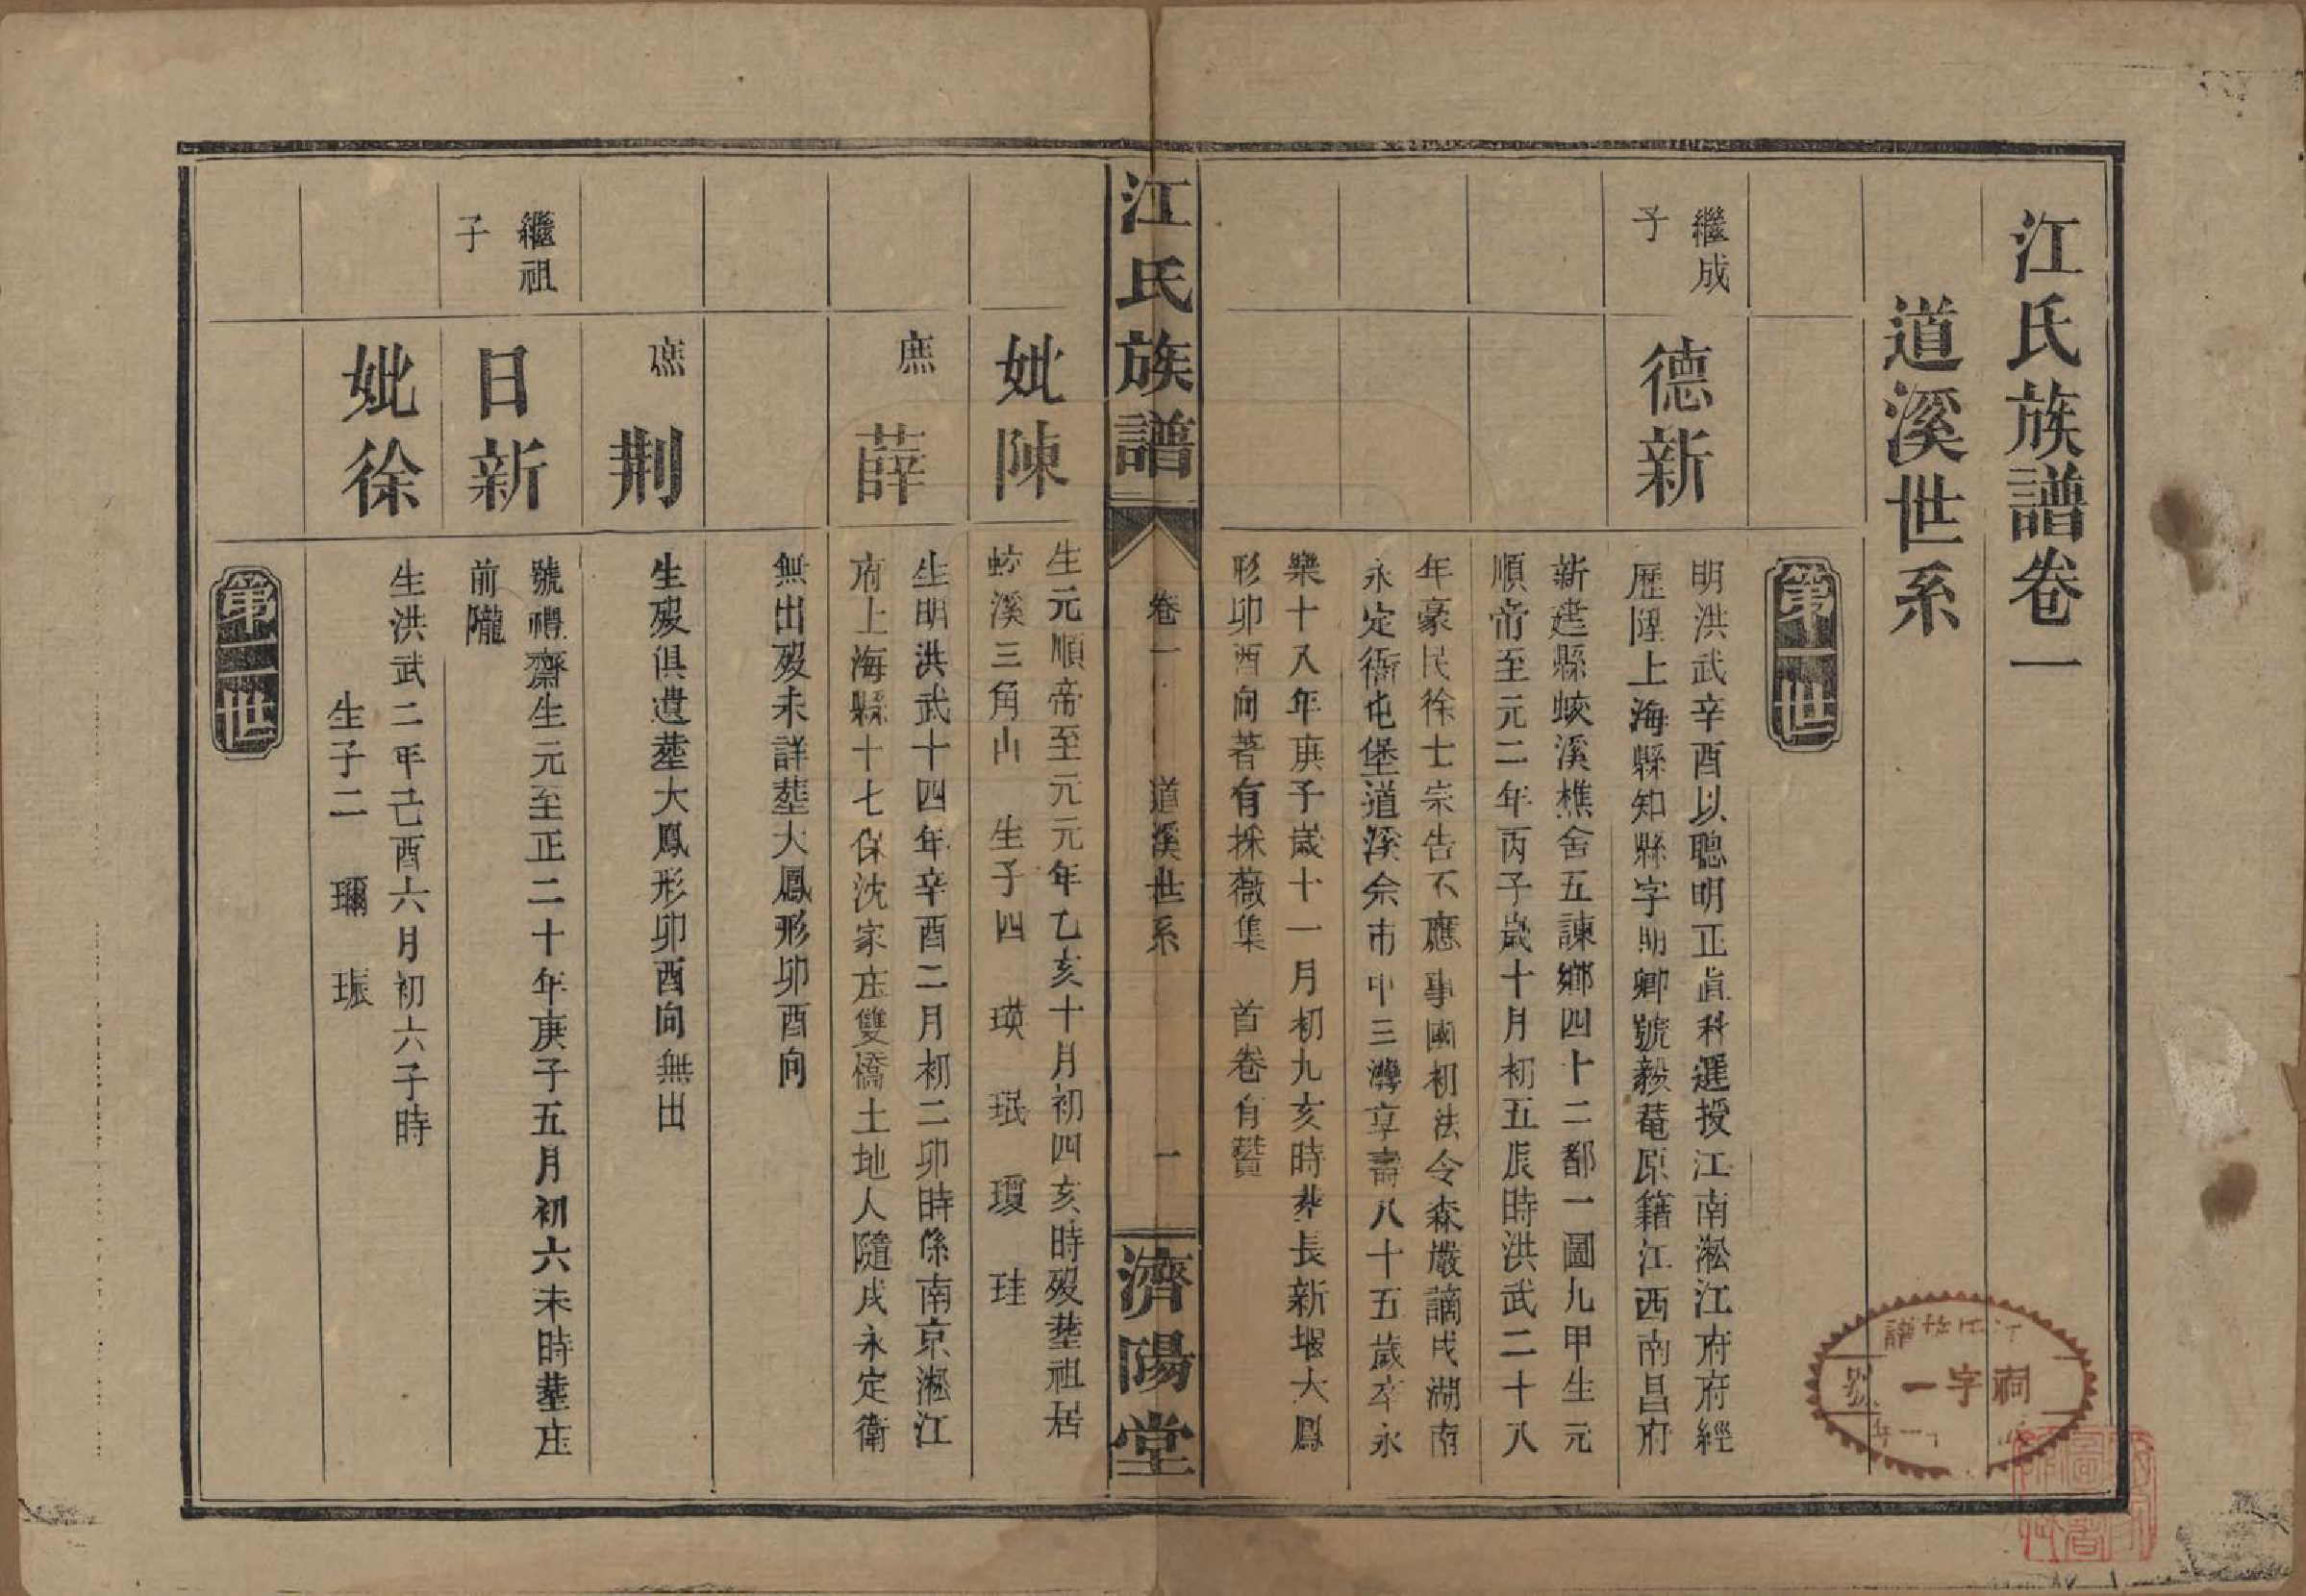 江氏族譜卷一
道溪世系
第一世
繼成
子
德新
明洪武辛酉以聰明正直科選授江南淞江府府經
歷陞上海縣知縣字明卿號毅菴原籍江西南昌府
新建縣蛟溪樵舍五諫鄉四十二都一圖九甲生元
順帝至元二年丙子歲十月初五辰時洪武二十八
年豪民徐士宗告不應事國初法令森嚴謫戍湖南
永定衞屯堡道溪余市中三灣享壽八十五歲卒永
樂十八年庚子歲十一月初九亥時葬長新堰大鳳
形卯酉向著有採薇集 首卷有贊
江氏族譜
卷一
道溪世系
一
濟陽堂
妣陳
生元順帝至元元年乙亥十月初四亥時歿塟祖居
蛟溪三角山 生子四 瑛 珉 瓊 珪
庶
薛
生明洪武十四年辛酉二月初二卯時係南京淞江
府上海縣十七保沈家庄雙橋土地人隨戍永定衛
無出歿未詳塟大鳳形卯酉向
庶
荆
生歿俱遺塟大鳳形卯酉向無出
繼祖
子
日新
號禮齋生元至正二十年庚子五月初六未時塟庄
前隴
妣徐
生洪武二年己酉六月初六子時
生子二 璊 珽
第二世
祠字一號